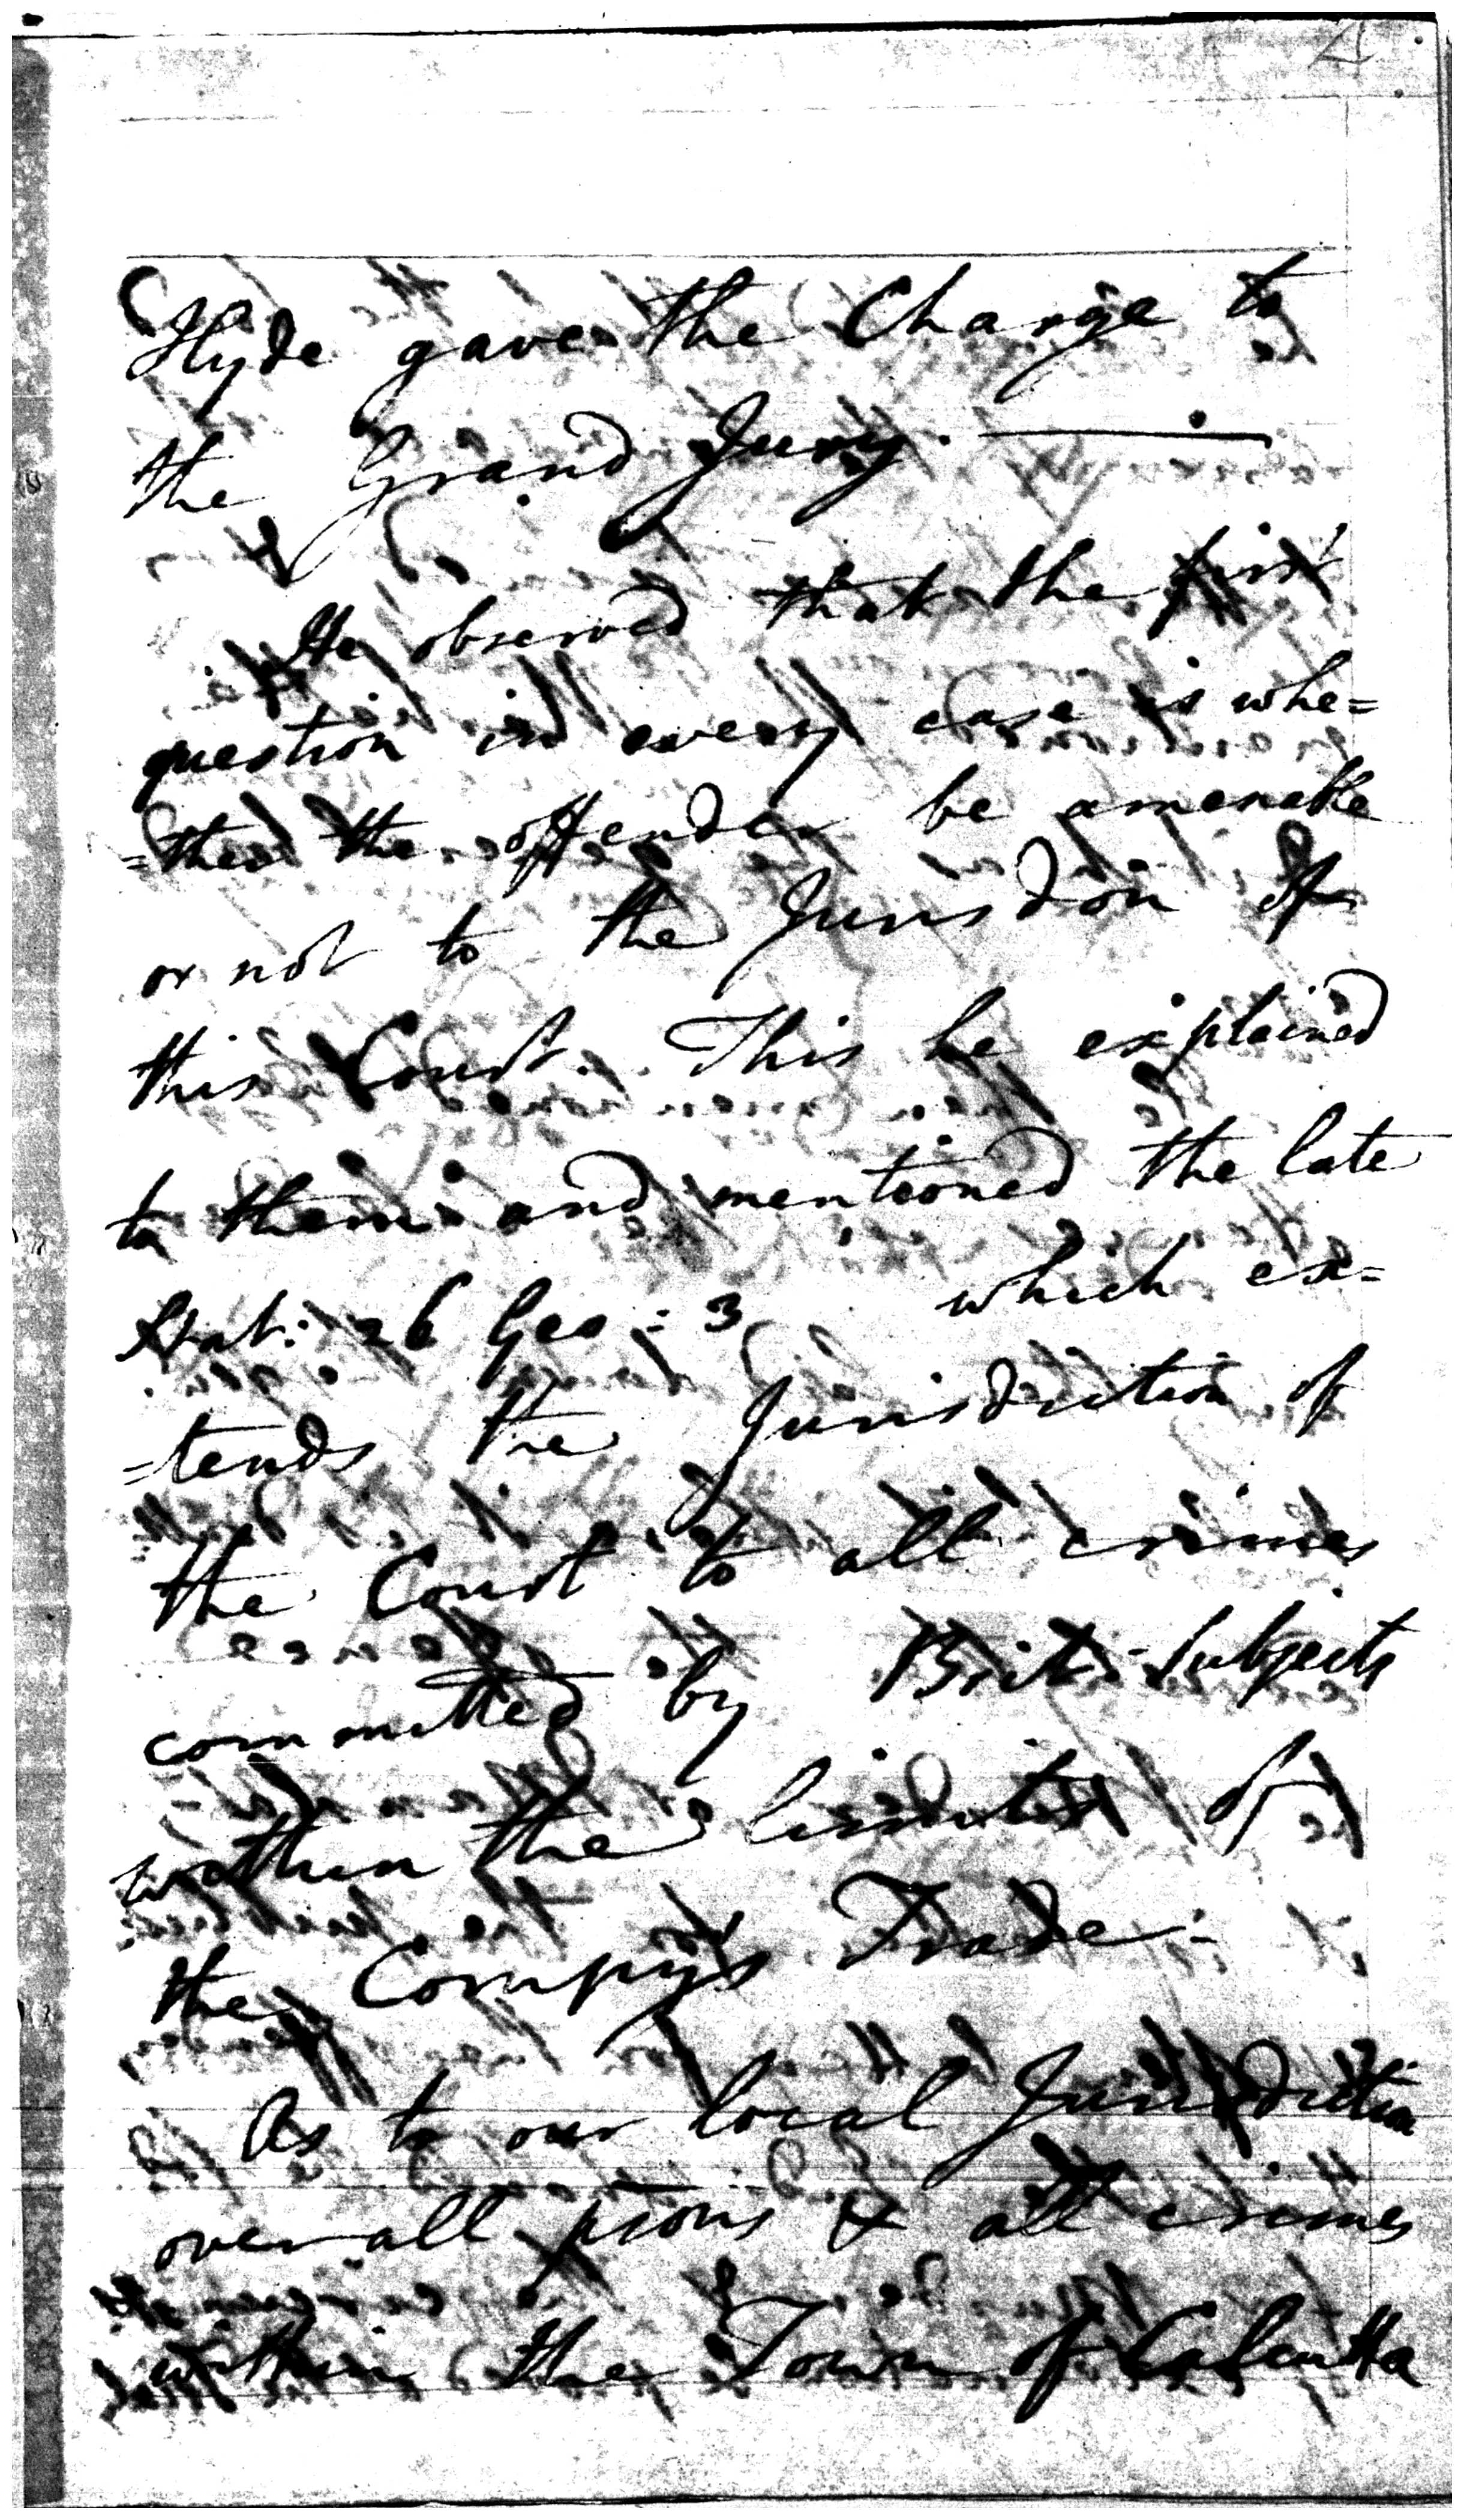 Hyde gave the Charge to
the Grand Jury.
He observed that the first
question in every case is whe=
=ther the offender be amenable
or not to the Jurisdōn of
this Court. This he explained
to them and mentioned the late
Stat: 26 Geo: 3 which ex=
=tends the Jurisdiction of
the Court to all crimes
committed by Brit: Subjects
within the limits of
the Compy's Trade.
As to our local Jurisdiction
over all p̄sons & all crimes
within the Town of Calcutta